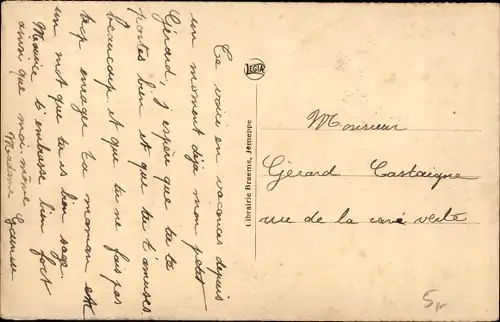 Te voici en vacances depuis
un moment déja mon petit
Gérard, j'espère que tu te
portes bien et que tu t'amuses
beaucoup et que tu ne fais pas
trop enrager ta maman et
un mot que tu es bien sage.
Maurice t'embrasse bien fort
ainsi que moi-même
Madame
LEGIA
Librairie Braems, Jemeppe
Monsieur
Gérard Castaigne
rue de la verte
5,-